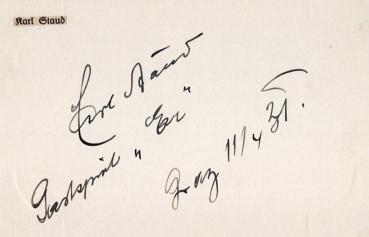 Karl Staud
Karl Staud
Gastspiel „Er"
Graz 11/4 31.